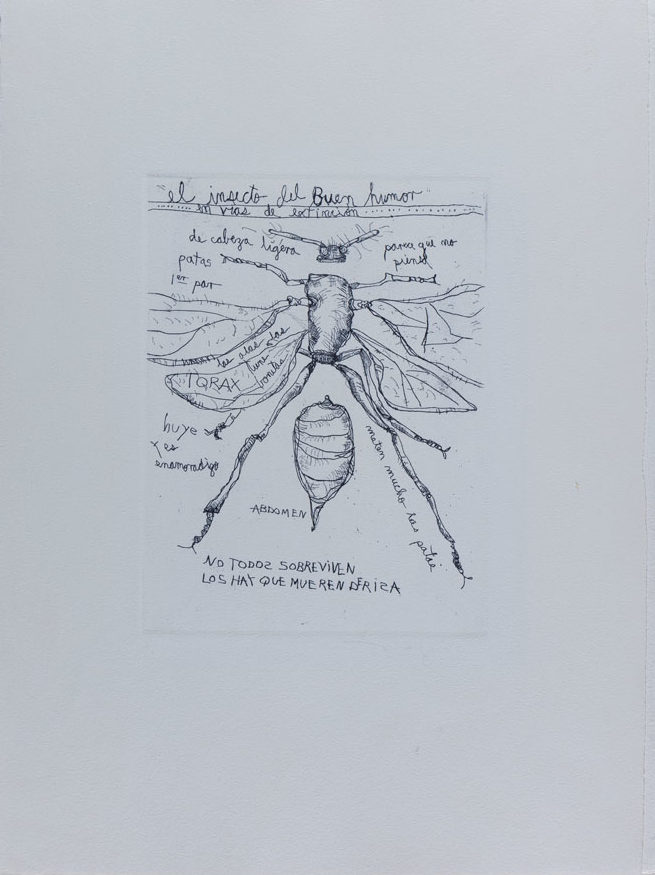 el insecto del Buen humor
en vias de extinción
de cabeza ligera
parece que no
piensa
patas
1er par
las alas las
tiene
bonitas
TORAX
huye
y es
enamoradizo
meten mucho las patas
ABDOMEN
NO TODOS SOBREVIVEN
LOS HAY QUE MUEREN DE RISA